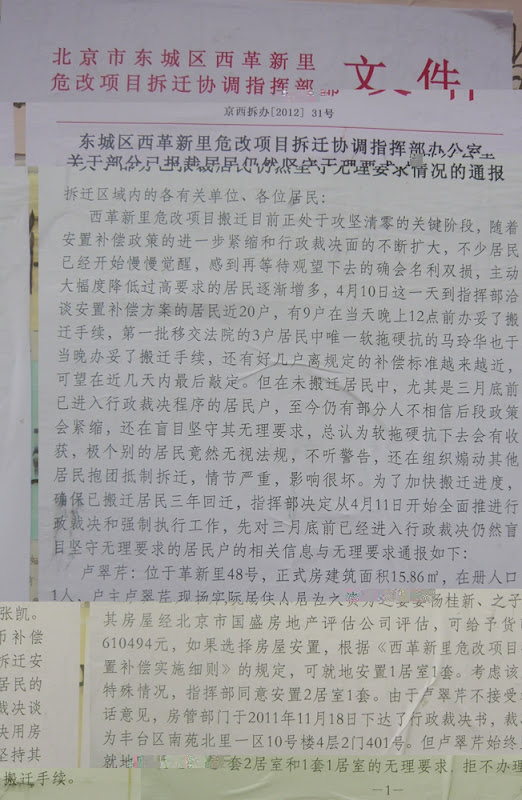 北京市东城区西革新里
危改项目拆迁协调指挥部
文件
京西拆办[2012] 31号
东城区西革新里危改项目拆迁协调指挥部办公室
关于部分已报裁居民仍然坚守无理要求情况的通报
拆迁区域内的各有关单位、各位居民：
西革新里危改项目搬迁目前正处于攻坚清零的关键阶段，随着
安置补偿政策的进一步紧缩和行政裁决面的不断扩大，不少居民
已经开始慢慢觉醒，感到再等待观望下去的确会名利双损，主动
大幅度降低过高要求的居民逐渐增多，4月10日这一天到指挥部洽
谈安置补偿方案的居民近20户，有9户在当天晚上12点前办妥了搬
迁手续，第一批移交法院的3户居民中唯一软拖硬抗的马玲华也于
当晚办妥了搬迁手续，还有好几户离规定的补偿标准越来越近，
可望在近几天内最后敲定。但在未搬迁居民中，尤其是三月底前
已进入行政裁决程序的居民户，至今仍有部分人不相信后段政策
会紧缩，还在盲目坚守其无理要求，总认为软拖硬抗下去会有收
获，极个别的居民竟然无视法规，不听警告，还在组织煽动其他
居民抱团抵制拆迁，情节严重，影响很坏。为了加快搬迁进度，
确保已搬迁居民三年回迁，指挥部决定从4月11日开始全面推进行
政裁决和强制执行工作，先对三月底前已经进入行政裁决仍然盲
目坚守无理要求的居民户的相关信息与无理要求通报如下：
卢翠芹：位于革新里48号，正式房建筑面积15.86㎡，在册人口
1人，户主卢翠芹，现场实际居住人员为之妻杨桂新、之子
张凯。
其房屋经北京市国盛房地产评估公司评估，可给予货
币补偿
610494元，如果选择房屋安置，根据《西革新里危改项目
拆迁安
置补偿实施细则》的规定，可就地安置1居室1套。考虑该
居民的
特殊情况，指挥部同意安置2居室1套。由于卢翠芹不接受
裁决谈
话意见，房管部门于2011年11月18日下达了行政裁决书，裁
决用房
为丰台区南苑北里一区10号楼4层2门401号。但卢翠芹始终
坚持其
就地 套2居室和1套1居室的无理要求，拒不办理
搬迁手续。
—1—